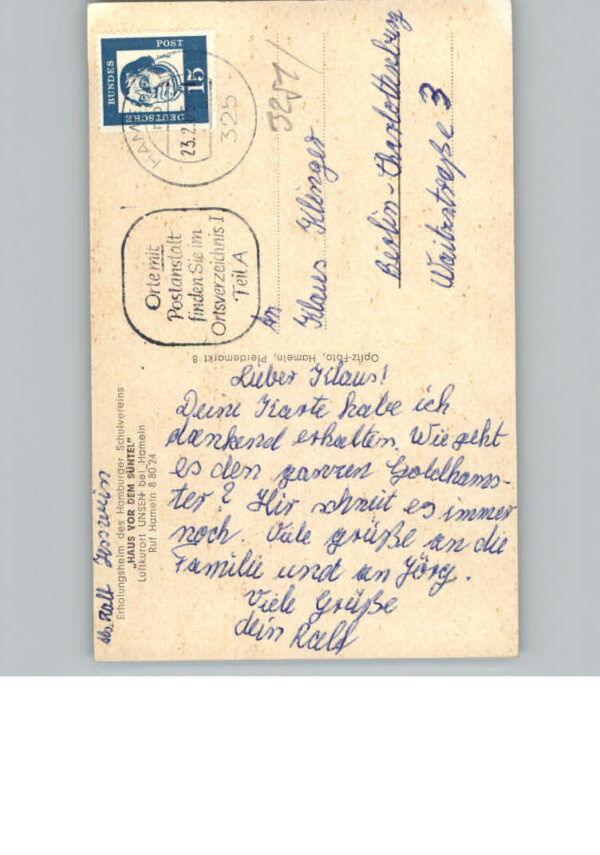 DEUTSCHE
BUNDES
POST
15
HAME
23.2.
325
3251/
Orte mit
Postanstalt
finden Sie im
Ortsverzeichnis I
Teil A
An
Klaus Klinger
Berlin-Charlottenburg
Waitzstraße 3
Opitz-Foto, Hameln, Pferdemarkt 8
Lieber Klaus!
Deine Karte habe ich
dankend erhalten. Wie geht
es den ganzen Goldhams-
ter? Hir schneit es immer
noch. Viele grüße an die
Familie und an Jörg.
Viele Grüße
dein Ralf
Abs. Ralf
Erholungsheim des Hamburger Schulvereins
„HAUS VOR DEM SÜNTEL"
Luftkurort UNSEN bei Hameln
Ruf Hameln 8 80 24